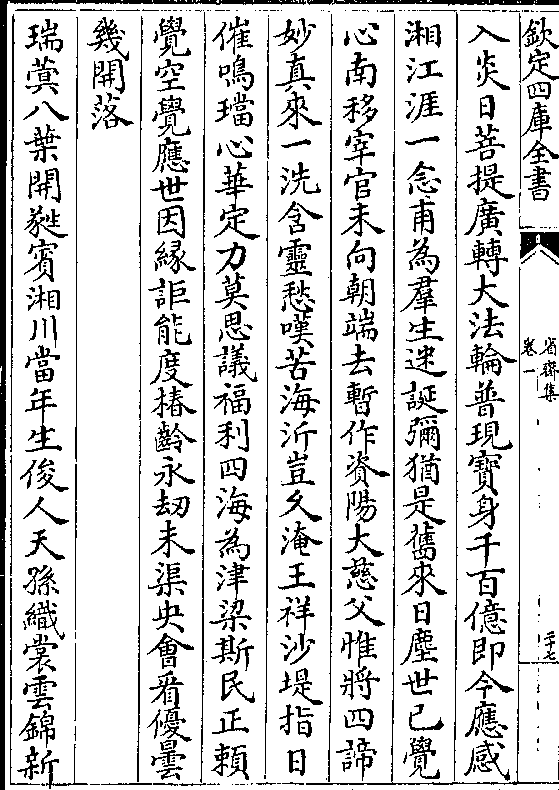 欽定四庫全書
省齋集
卷一
二十七
入炎日菩提廣轉大法輪普現寶身千百億即今應感
湘江涯一念甫為羣生迷誕彌猶是舊來日塵世已覺
心南移宰官未向朝端去暫作資陽大慈父惟將四諦
妙真來一洗含靈愁嘆苦海沂豈久淹王祥沙堤指日
催鳴璫心華定力莫思議福利四海為津梁斯民正賴
覺空覺應世因緣詎能度椿齡永劫未渠央會看優曇
幾開落
瑞蓂八葉開蕤賓湘川當年生俊人天孫織裳雲錦新